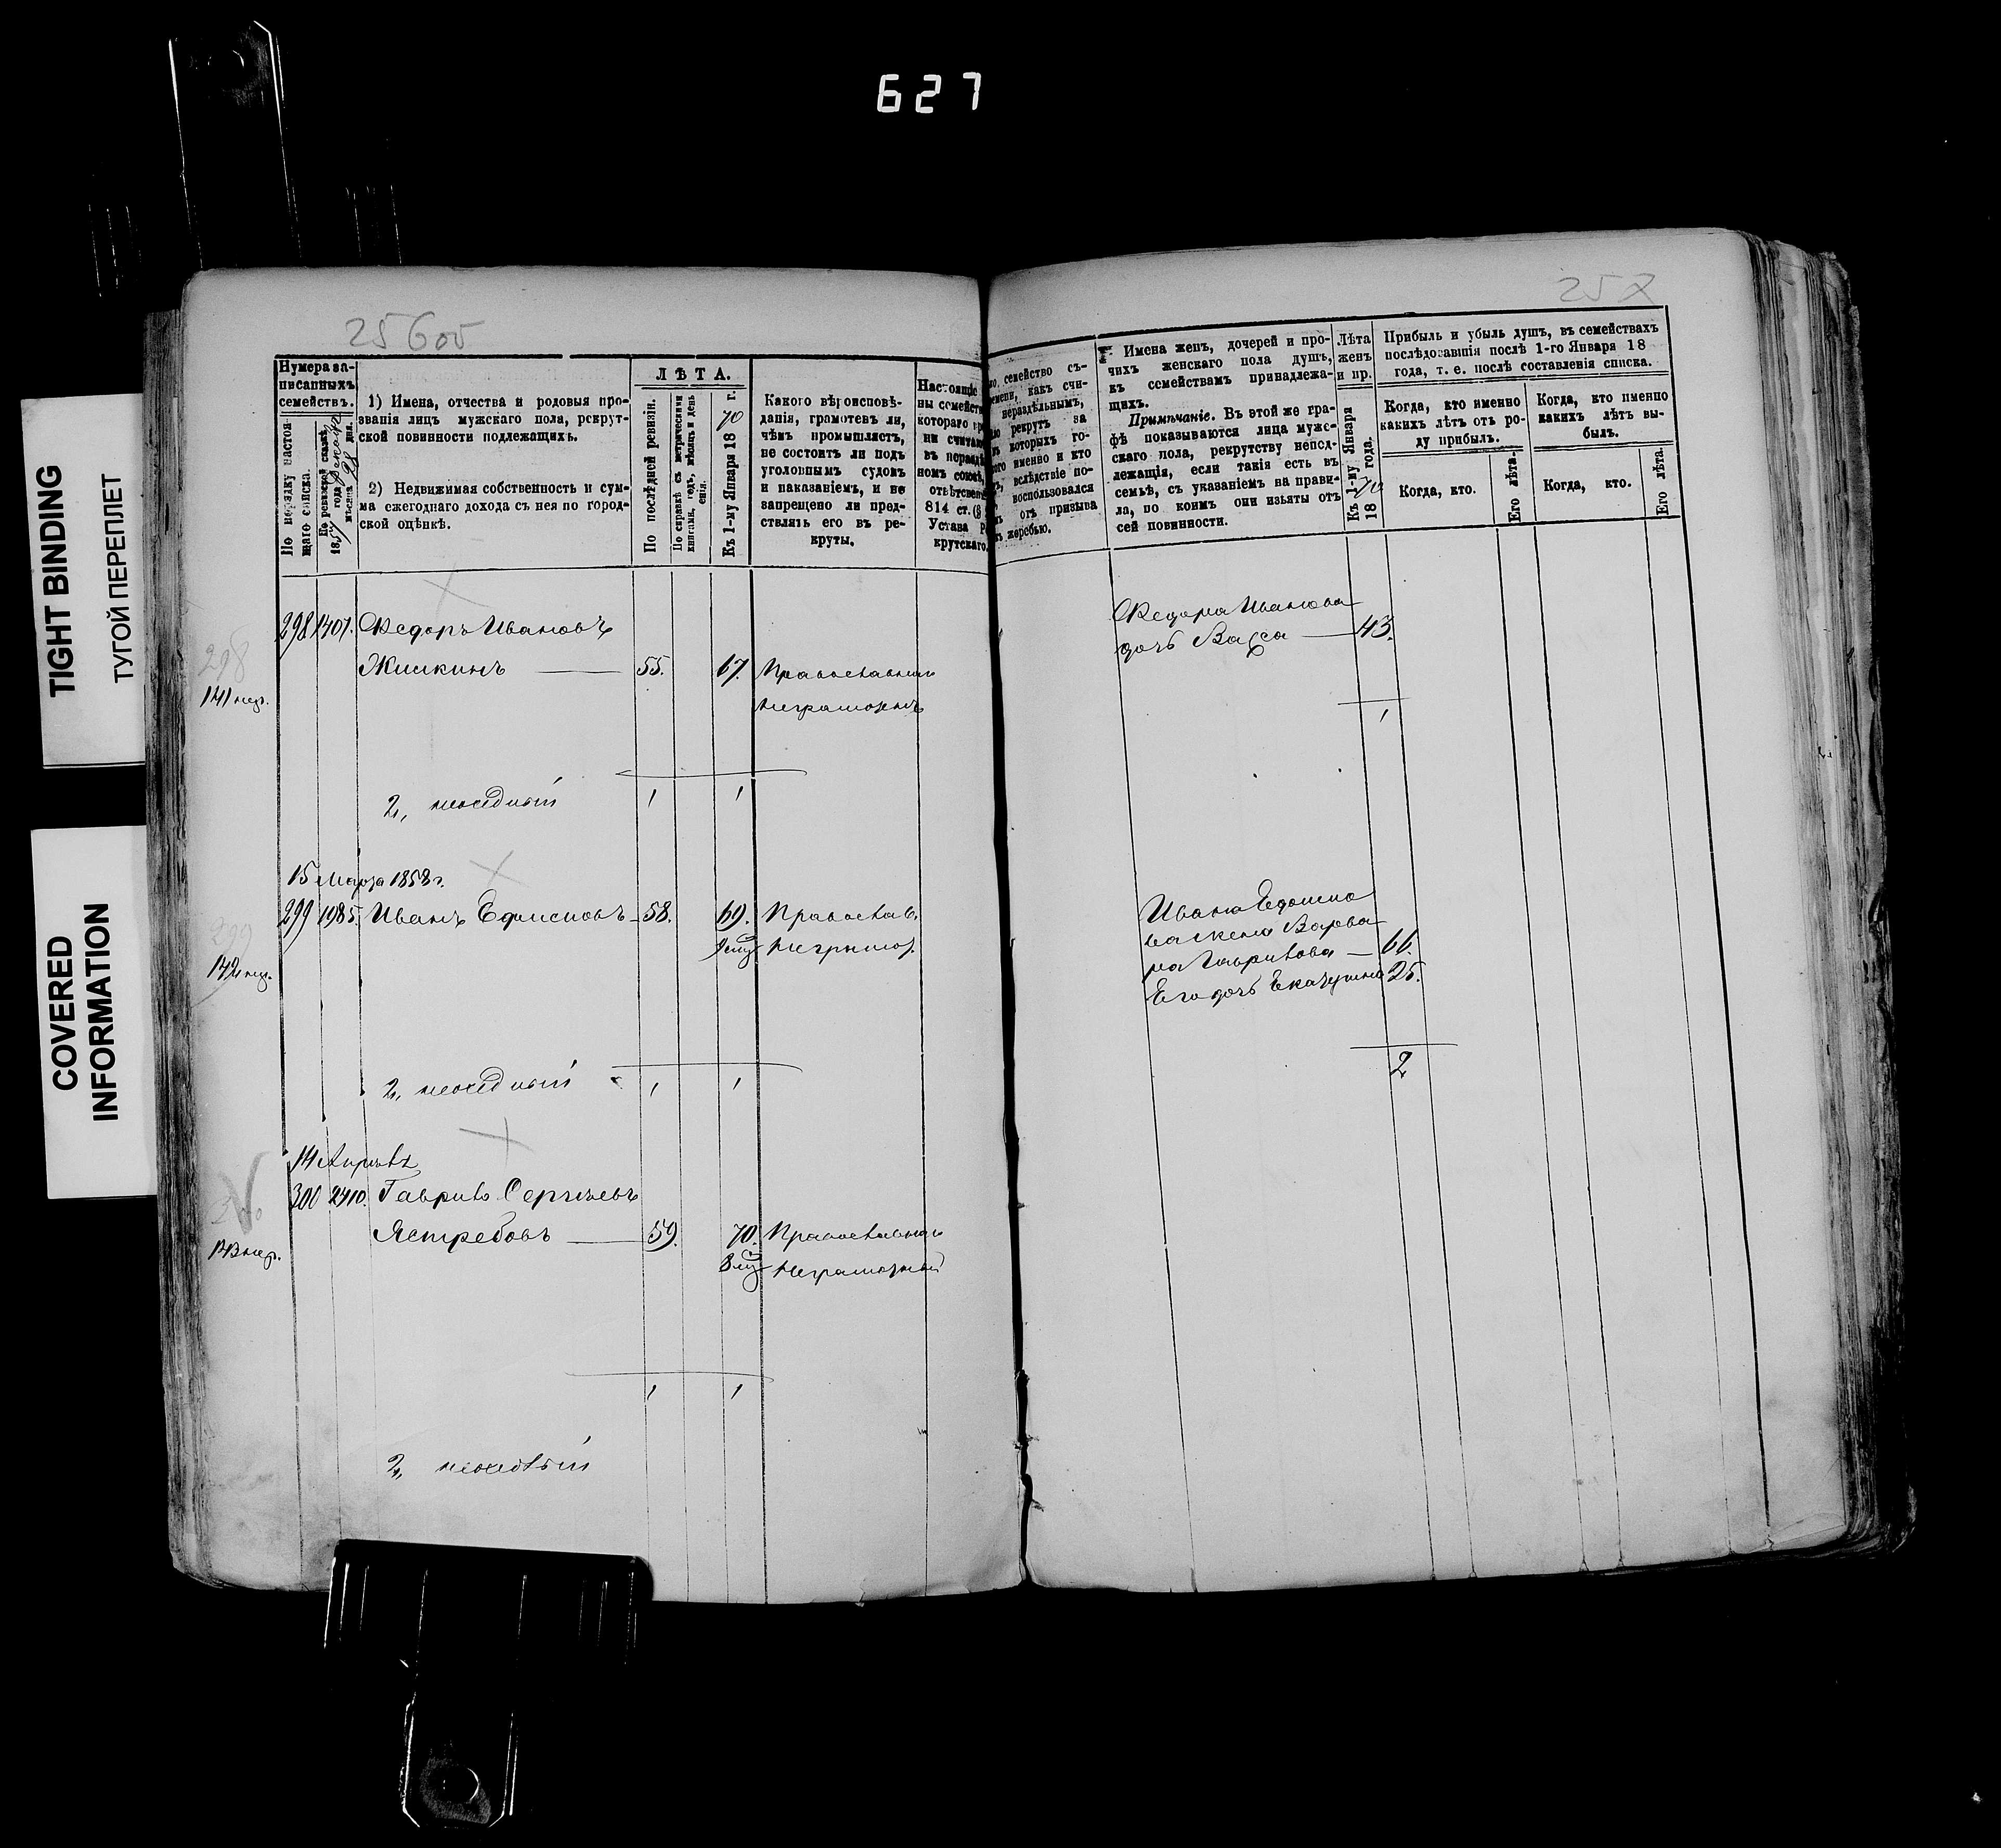 627
TIGHT BINDING
ТУГОЙ ПЕРЕПЛЕТ
COVERED
INFORMATION
256 об
257
Нумера за-
писанныхъ
семействъ.
По порядку настоя-
щаго списка.
По ревизской сказкѣ
18 года
мѣсяца 28 дня.
1) Имена, отчества и родовыя про-
званія лицъ мужскаго пола, рекрут-
ской повинности подлежащихъ.
2) Недвижимая собственность и сум-
ма ежегоднаго дохода съ нея по город-
ской оцѣнкѣ.
ЛѢТА.
По послѣдней ревизіи.
По справкѣ съ метрическими
книгами, годъ, мѣсяцъ и день
Къ 1-му Января 18 70 г.
Какого вѣроисповѣ-
данія, грамотенъ ли,
чѣмъ промышляетъ,
не состоитъ ли подъ
уголовнымъ судомъ
и наказаніемъ, и не
запрещено ли пред-
ставлять его въ ре-
круты.
Настоящіе
ны семейст
котораго
ни счита
въ нераздѣ
номъ союзѣ
отвѣтствен
814 ст. (8
Устава Р
крутскаго.
семейство съ-
времени, какъ счи-
нераздѣльнымъ,
рекрутъ за
которыхъ го-
именно и кто
вслѣдствіе по-
воспользовался
отъ призыва
жеребью.
Имена женъ, дочерей и про-
чихъ женскаго пола душъ,
къ семействамъ принадлежа-
щихъ.
Примѣчаніе. Въ этой же гра-
фѣ показываются лица муже-
скаго пола, рекрутству непод-
лежащія, если такія есть въ
семьѣ, съ указаніемъ на прави-
ла, по коимъ они изъяты отъ
сей повинности.
Лѣта
женъ
и пр.
Къ 1-му Января
18 70 года.
Прибыль и убыль душъ, въ семействахъ
послѣдовавшія послѣ 1-го Января 18
года, т. е. послѣ составленія списка.
Когда, кто именно
какихъ лѣтъ отъ ро-
ду прибылъ.
Когда, кто именно
какихъ лѣтъ вы-
былъ.
Когда, кто.
Его лѣта.
Когда, кто.
Его лѣта.
298
141 нер.
298 1407. Ѳедоръ Ивановъ
Жискинъ 55. 67. Православный
Неграмотенъ
Ѳедора Иванова
дочь Васса 43.
1
2,, неосѣдлый 1 1
15 Марта 1858 г.
299
142 нер.
299 1985. Иванъ Ефимовъ 58. 69. Православ.
9 мц Неграмот.
Ивана Ефимо
ва жена Варва
ра Гаврилова 66.
Его дочь Екатерина 25.
2
2,, неосѣдлый 1 1
14 Апрѣля
300
143 нер.
300 2410. Гаврило Сергѣевъ
Ястребовъ 59. 70. Православный
8 мц Неграмотный
1 1
2,, неосѣдлый